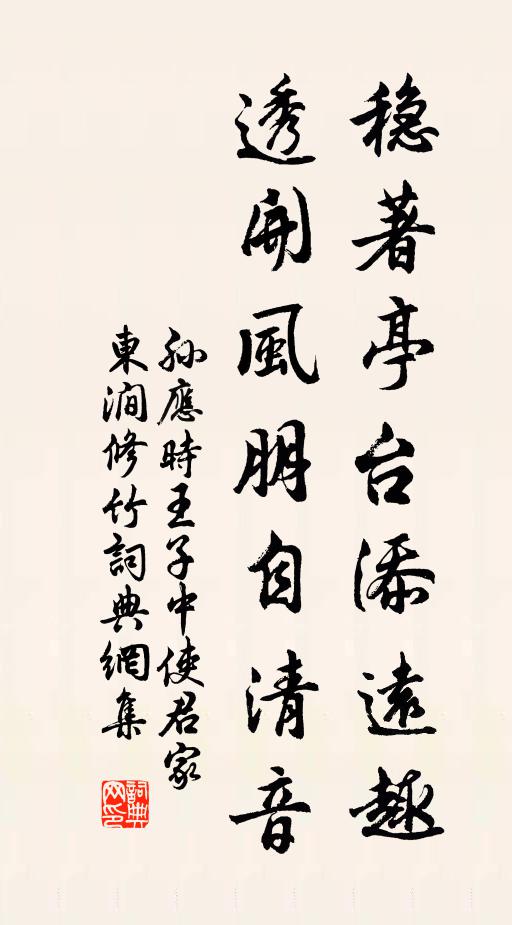 穩著亭台添遠趣
透開風朋自清音
孫應時王子中使君家
東澗修竹詞典網集
詞典网印